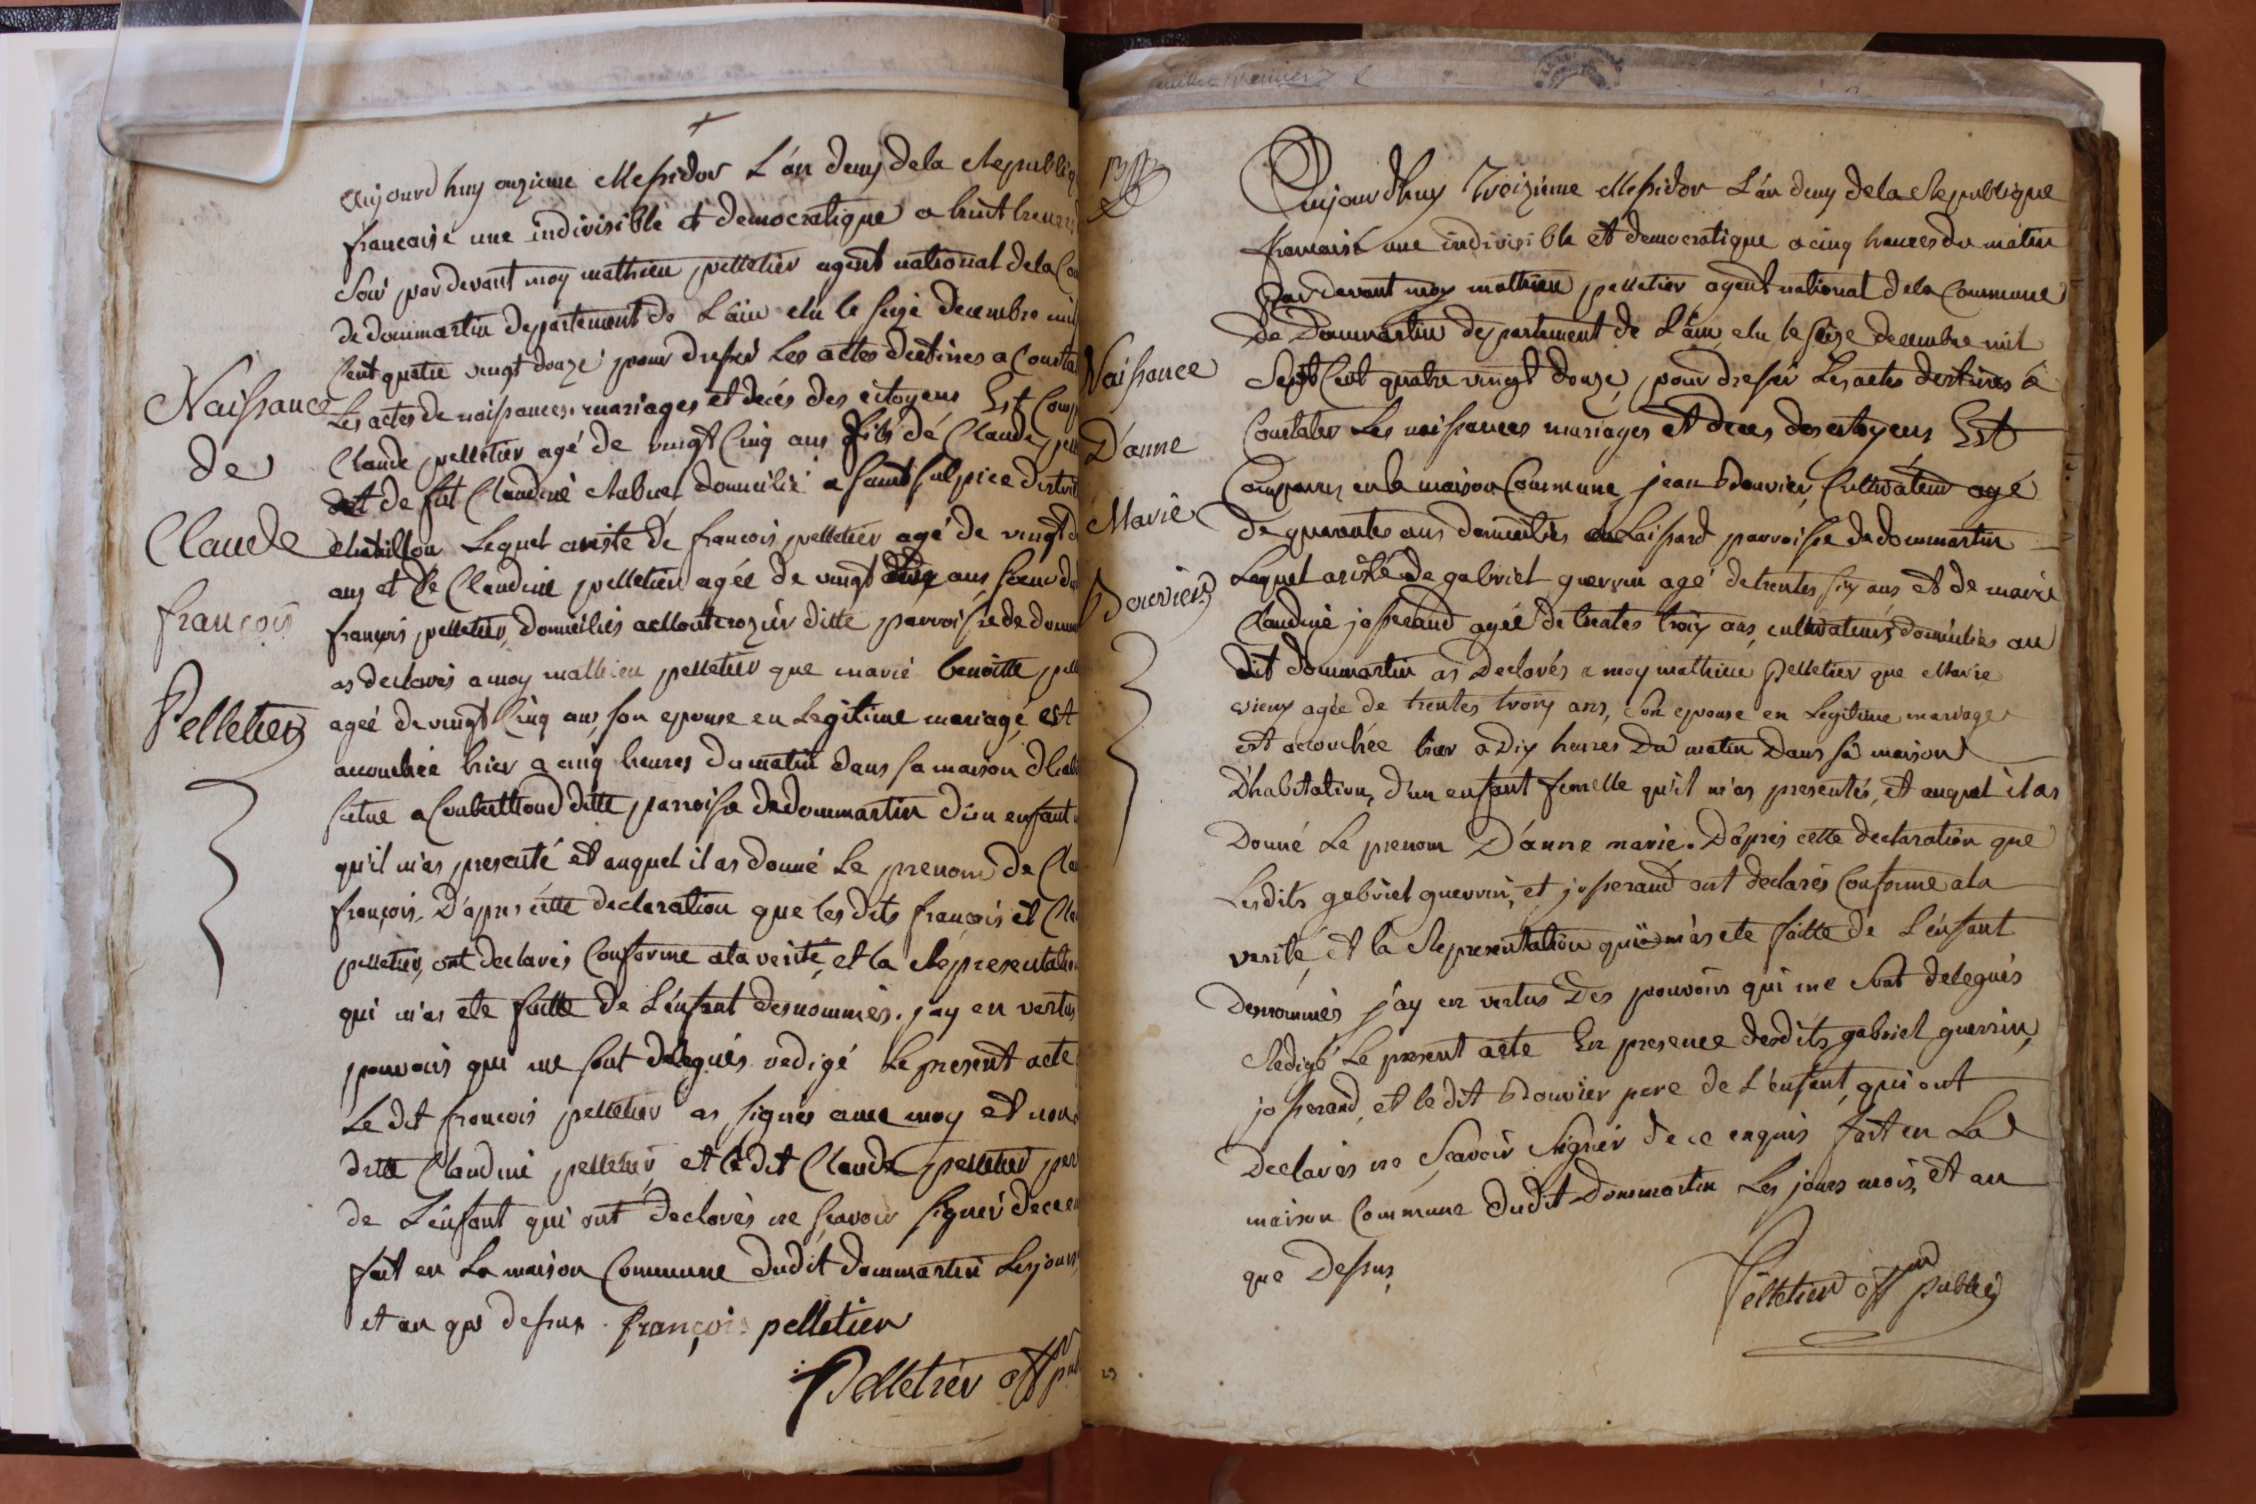 Aujourd huy onzieme Messidor L'an deuy de la Republiq
francaise une indivisible et democratique a huit heures
Soir par devant moy mathieu pelletier agent national de la Com
de dommartin departement de L'ain elu le seize decembre mil
Cent quatre vingt douze pour dresser Les actes destines a Consta
Les actes de naissances, mariages et decés des citoyens Est Comp
Claude pelletier agé de vingt Cinq ans fils de Claude pell
et de fut Claudine domicilié a saint sulpice district
chatillon Lequel assisté de francois pelletier agé de vingt
ans et de Claudine pelletier agée de vingt ans
françois pelletier, domicilies a Montcrozier ditte parroisse de domm
as declarés a moy mathieu pelletier que marie benoitte pell
ageé de vingt Cinq ans, son epouse en Legitime mariagé, est
accouchée hier a cinq heures du matin dans sa maison d'habi
situe a ditte parroisse de dommartin d'un enfant
qu'il m'as presenté et auquel il as donné Le prenom de Cla
françois. D'apres cette declaration que les dits françois et Cla
pelletier, ont declarés Conforme a la verité, et la Representation
qui m'as ete faitte de L'enfant desnommés. jay en vertus
pouvoirs qui me sont delegués redigé Le present acte
Le dit francois pelletier as signés avec moy et non
ditte Claudine pelletier, et le dit Claude pelletier per
de L'enfant qui ont declarés ne scavoir signer de ce en
fait en La maison Commune dudit dommartin Les jours,
et an que dessus. françois pelletier
Pelletier off pub
Naissance
de
Claude
françois
Pelletier
Aujourdhuy Treizieme Messidor L'an deuy de la Republique
francaise une indivisible et democratique a cinq heures du matin
Par devant moy mathieu pelletier agent national de la Commune
de Dommartin departement de L'ain elu le seize decembre mil
Sept Cent quatre vingt douze, pour dresser Les actes destinés a
Constater Les naissances mariages et deces des citoyens Est
Comparus en la maison Commune jean Bouvier, Cultivateur agé
de quarantes ans domicilies Laissard parroisse de dommartin
Lequel assisté de gabriel guerrin agé de trentes six ans et de marie
Claudine josserand ageé de trentes troiy ans, cultivateurs domicilies au
dit dommartin as Declarés a moy mathieu pelletier que Marie
agée de trentes troiy ans, Son epouse en Legitime mariage
est accouchée hier a Dix heures Du matin Dans sa maison
D'habitation, d'un enfant femelle qu'il m'as presentés, et auquel il as
Donné Le prenom D'anne marie. D'apres cette declaration que
Lesdits gabriel guerrin, et josserand ont declarés Conforme a la
verité, et la Representation qui m'as ete faitte de L'enfant
desnommés j'ay en vertus Des pouvoirs qui me sont delegués
Redigé Le present acte En presence desdits gabriel guerrin,
josserand, et le dit Bouvier pere de L'enfant, qui ont
Declarés ne Scavoir Signer de ce enquis fait en La
maison Commune dudit Dommartin Les jours mois, et an
que Dessus,
Pelletier off public
Naissance
D'anne
Marie
Bouvier